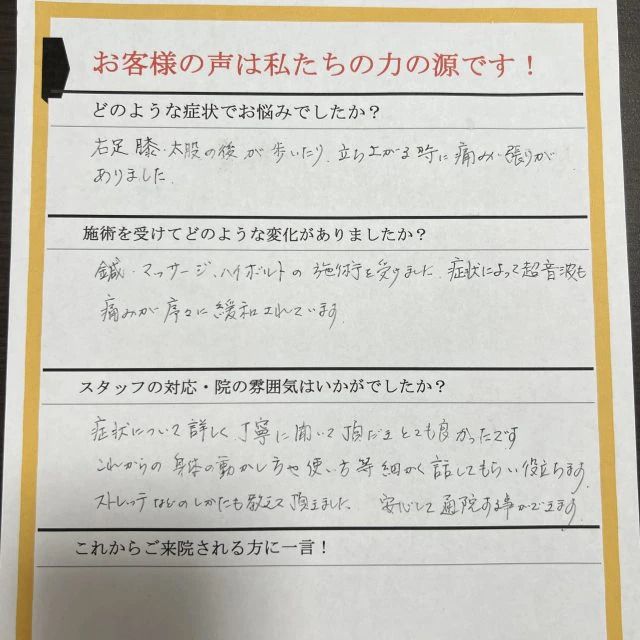 お客様の声は私たちの力の源です！
どのような症状でお悩みでしたか？
右足 膝・太股の後が歩いたり、立ち上がる時に痛み・張りが
ありました。
施術を受けてどのような変化がありましたか？
鍼・マッサージ、ハイボルトの施術を受けました。症状によって超音波も
痛みが序々に緩和されています。
スタッフの対応・院の雰囲気はいかがでしたか？
症状について詳しく、丁寧に聞いて頂だきとても良かったです
これからの身体の動かし方や使い方等細かく話してもらい役立ちます。
ストレッチなどのしかたも教えて頂きました。 安心して通院する事ができます。
これからご来院される方に一言！